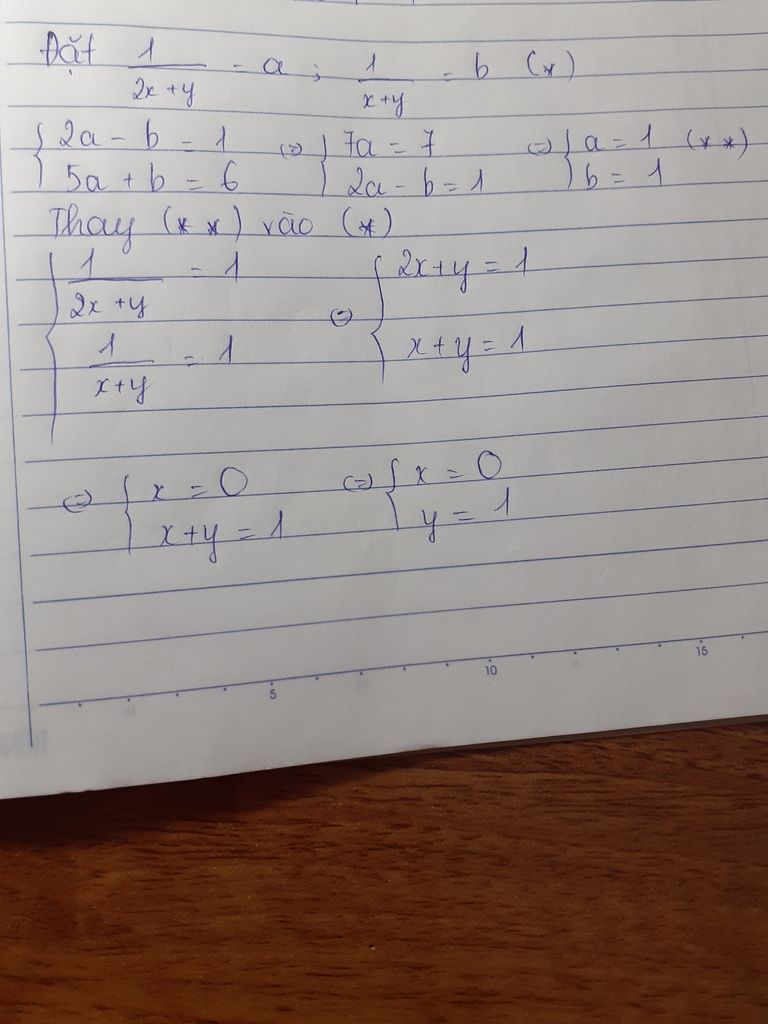 Đặt 1/(2x+y) = a ; 1/(x+y) = b (*)
{ 2a - b = 1 ; 5a + b = 6 (=) { 7a = 7 ; 2a - b = 1 (=) { a = 1 ; b = 1 (**)
Thay (**) vào (*)
{ 1/(2x+y) = 1 ; 1/(x+y) = 1 (=) { 2x+y = 1 ; x+y = 1
(=) { x = 0 ; x+y = 1 (=) { x = 0 ; y = 1
5 10 15